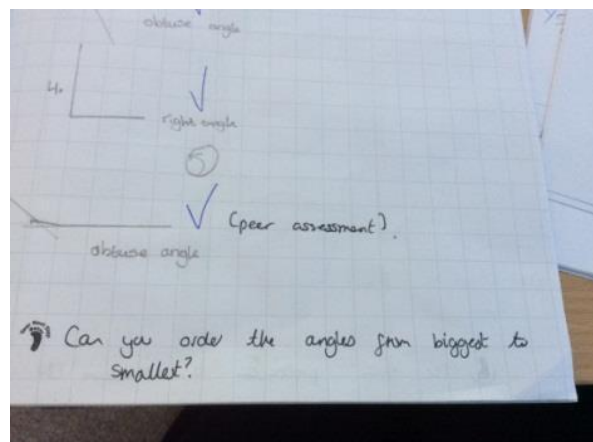 obtuse angle
4.
right angle
5
(peer assessment).
obtuse angle
Can you order the angles from biggest to
smallest?